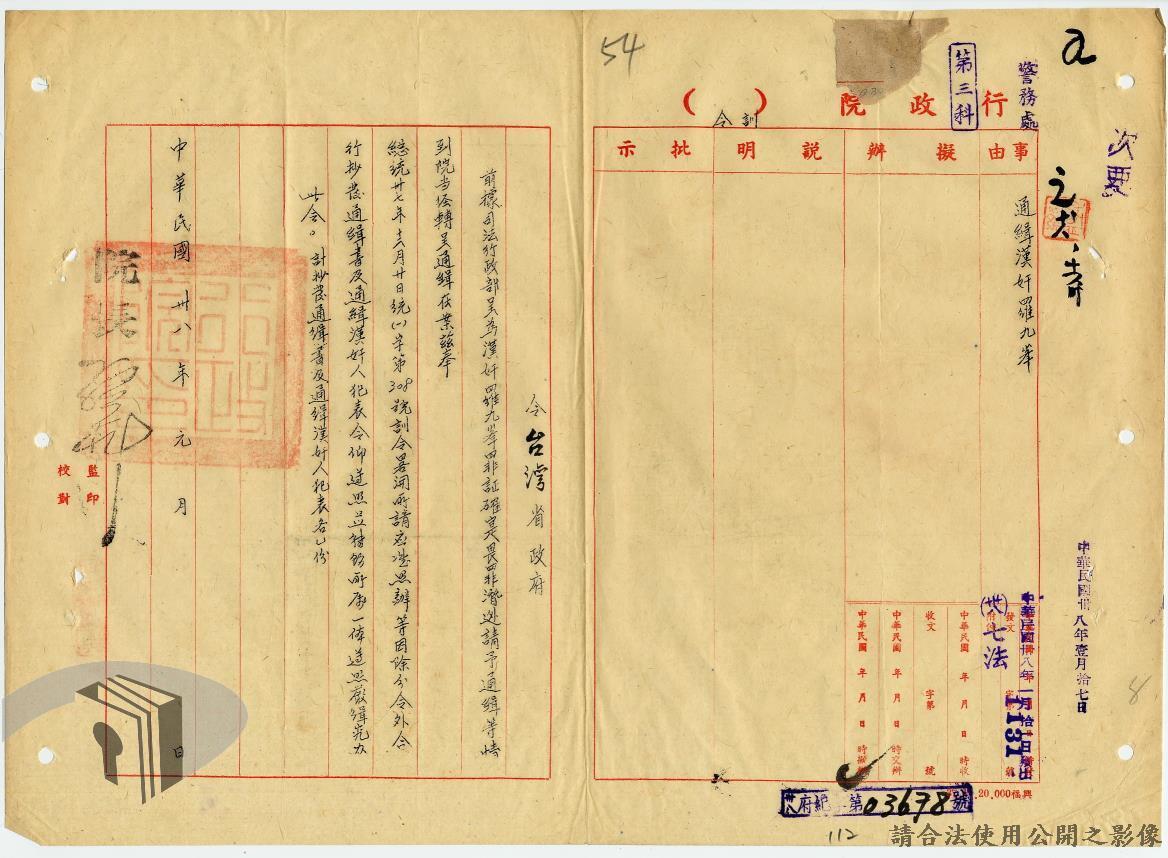 54
a
警務處
第三科
次要
行政院（訓令）
事由
擬辦
說明
批示
通緝漢奸羅九峯
中華民國卅八年壹月拾七日
中華民國卅八年一月拾一日發出
發文
字第
號
(卅)七法
1131
中華民國 年 月 日 時收
收文 字第 號
中華民國 年 月 日 時交辦
中華民國 年 月 日 時擬
20,000
府紀 字第03678號
112
8
令台灣省政府
前據司法行政部呈為漢奸羅九峯罪証確寔畏罪潛逃請予通緝等情
到院当經轉呈通緝在案茲奉
總統卅七年十二月廿日統㈠字第308號訓令畧開所請应准照辦等因除分令外合
行抄發通緝書及通緝漢奸人犯表令仰遵照並轉飭所屬一体遵照嚴緝究办
此令。
計抄發通緝書及通緝漢奸人犯表各乙份
院長孫科
中華民國卅八年元月 日
監印
校對
請合法使用公開之影像